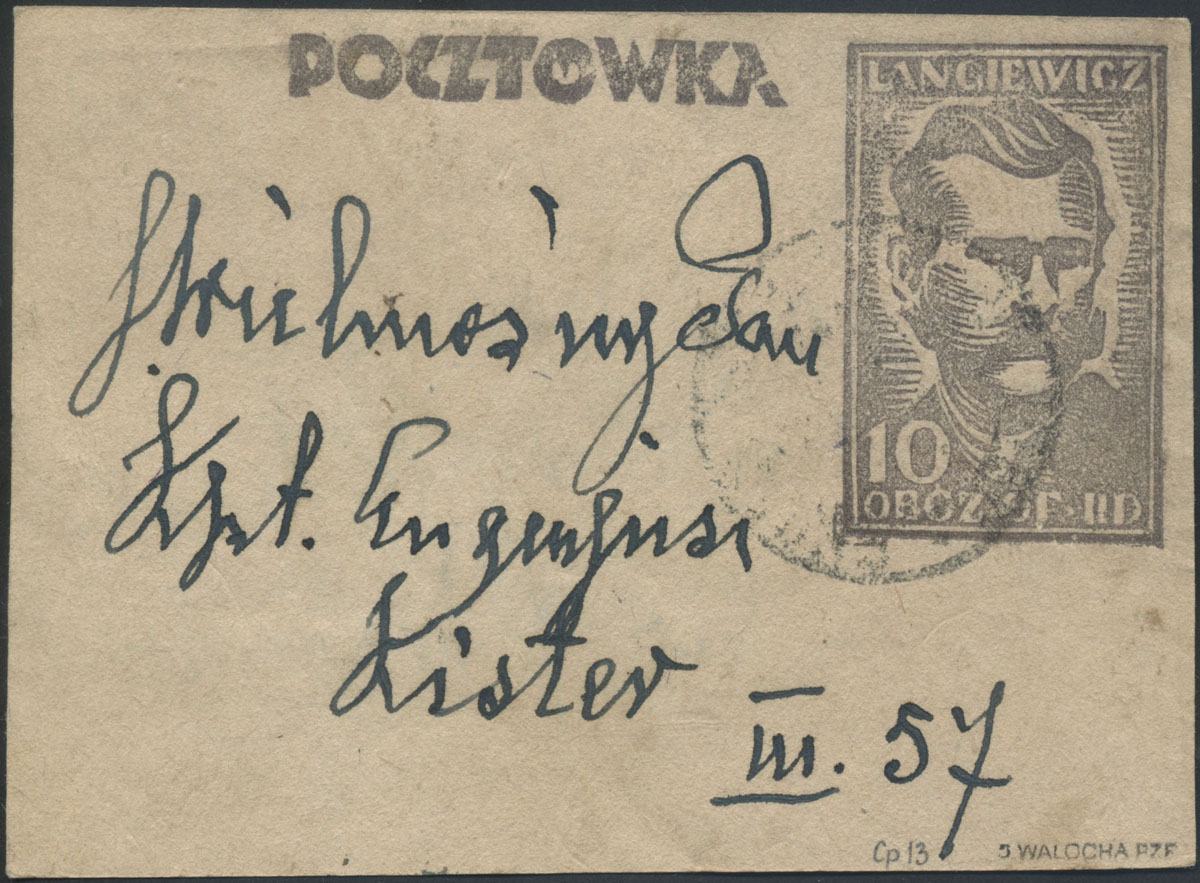 POCZTOWKA
LANGIEWICZ
10
OBOZ OF. IID
Wielmożny Pan
Kpt. Eugeniusz
Kister
III. 57
Cp 13
WALOCHA PZF